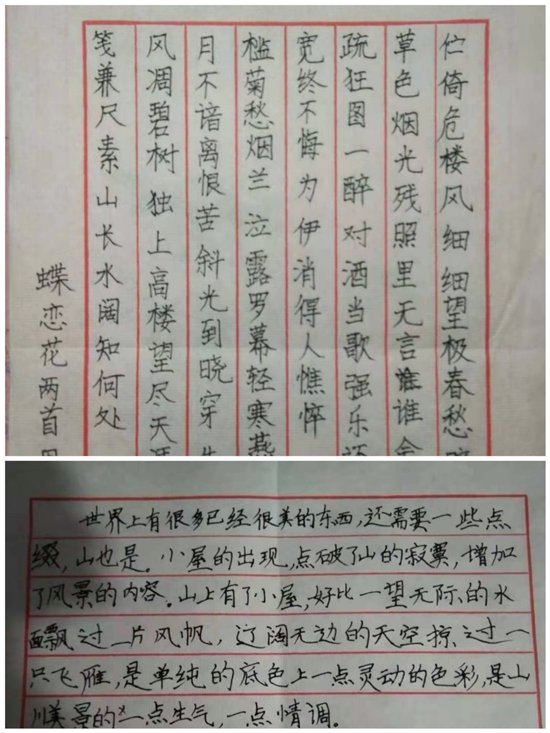 伫倚危楼风细细望极春愁
草色烟光残照里无言谁谁会
疏狂图一醉对酒当歌强乐还
宽终不悔为伊消得人憔悴
槛菊愁烟兰泣露罗幕轻寒燕
月不谙离恨苦斜光到晓穿
风凋碧树独上高楼望尽天涯
笺兼尺素山长水阔知何处
蝶恋花两首
世界上有很多已经很美的东西,还需要一些点
缀,山也是。小屋的出现,点破了山的寂寞,增加
了风景的内容。山上有了小屋,好比一望无际的水
面飘过一片风帆,辽阔无边的天空掠过一
只飞雁,是单纯的底色上一点灵动的色彩,是山
川美景的一点生气,一点情调。